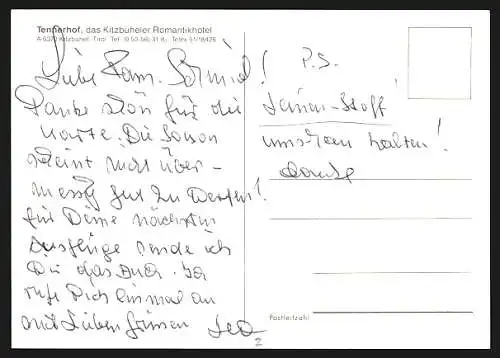 Tennerhof, das Kitzbüheler Romantikhotel
A-6370 Kitzbühel · Tirol · Tel.
Liebe Fam. Schmid!
Danke schön für die
Karte. Die Saison
scheint nicht über-
messig gut zu werden!
für Deine nächsten
Ausflüge sende ich
Dir das Buch. Ich
rufe Dich einmal an
mit lieben Grüssen Leo
2
P.S.
Leinen-Stoff
halten!
Danke
Postleitzahl